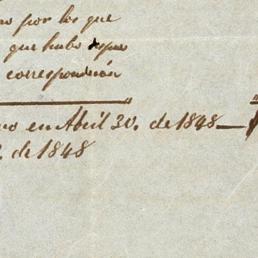 por los que
que hubo
correspondian
en Abril 30. de 1848
. de 1848